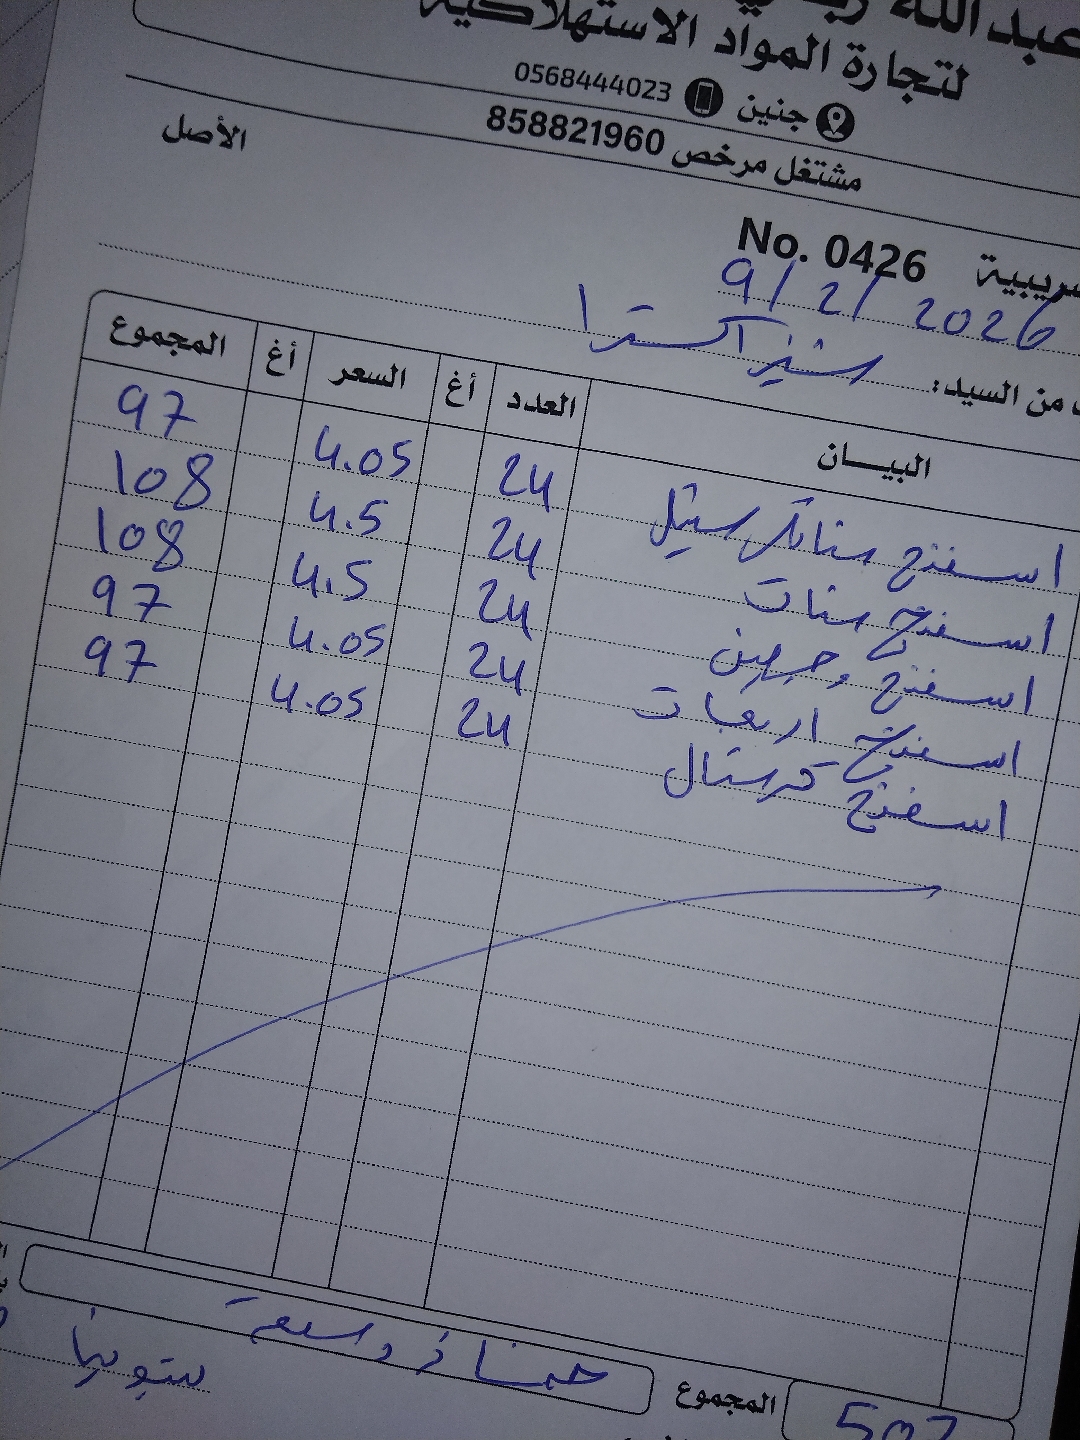 عبد الله
لتجارة المواد الاستهلاكية
جنين 0568444023
مشتغل مرخص 858821960
الأصل
No. 0426
9/2/2026
من السيد: اكسترا
البيــان العدد أغ السعر أغ المجموع
اسفنج ستانلس ستيل 24 4.05 97
اسفنج ستات 24 4.5 108
اسفنج وجهين 24 4.5 108
اسفنج اربعات 24 4.05 97
اسفنج كرستال 24 4.05 97
المجموع 507